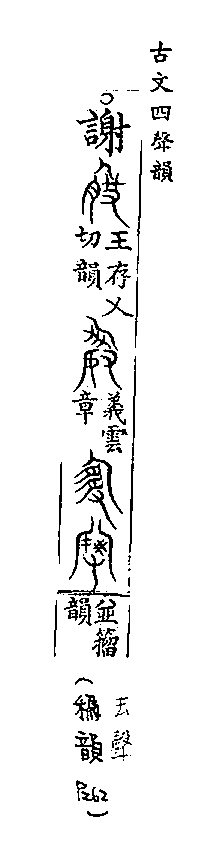 古文四聲韻
謝
王存乂
切韻
義雲
章
並籀
韻
去聲
(禡韻
P262)